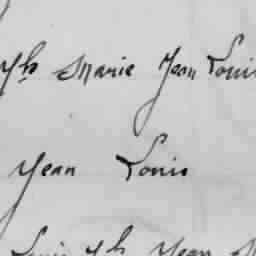 yh Marie Jean Louis
Jean Louis
Louis yh Jean